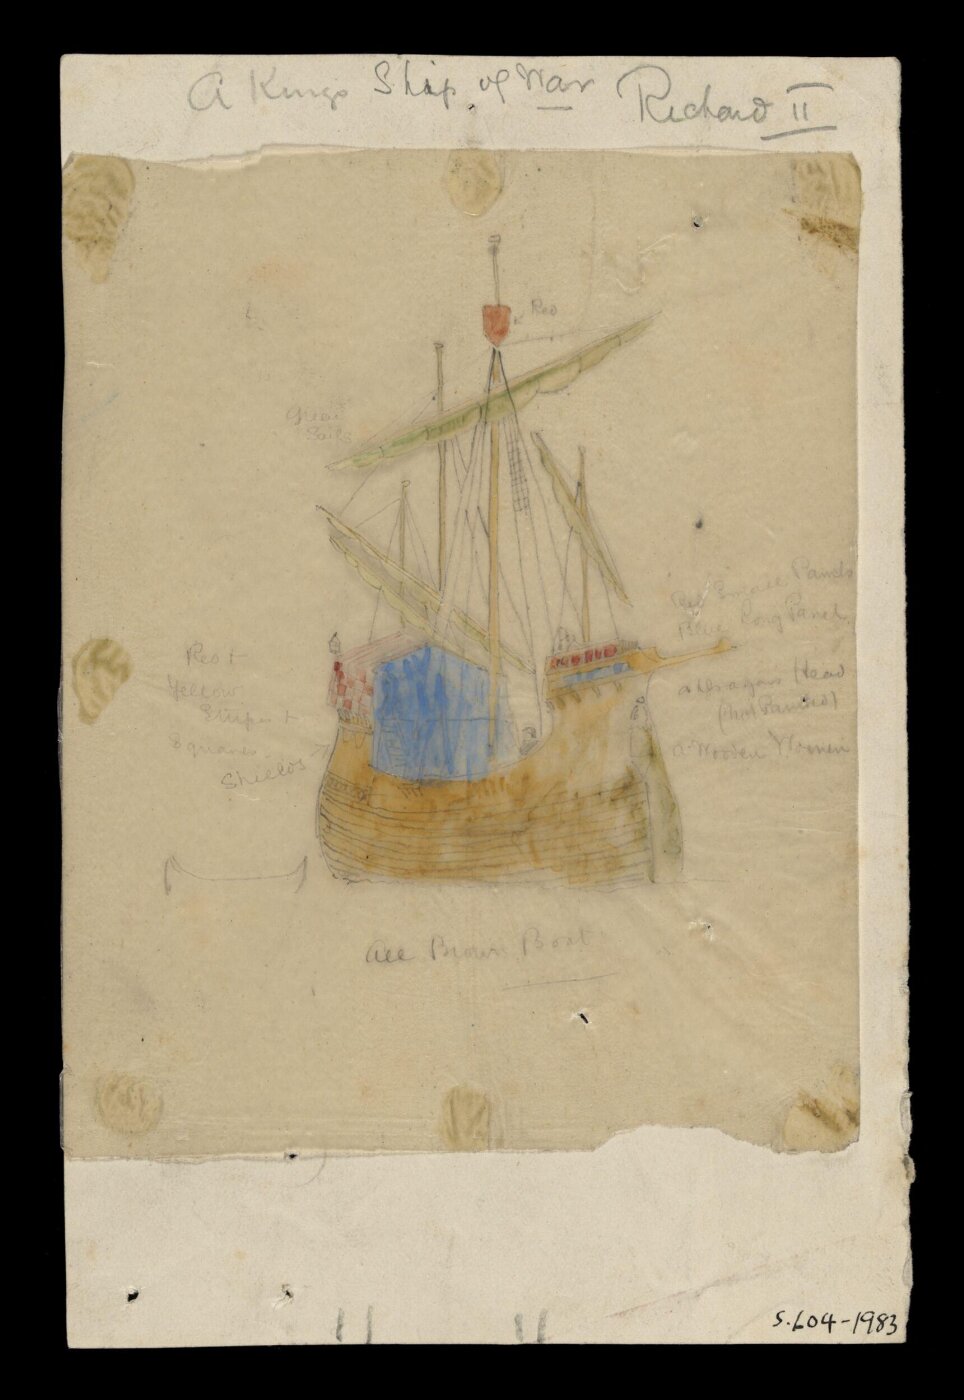 A Kings Ship of War Richard II
Red
Green
Sails
Red Panels
Blue Long Panels
Red +
Yellow
Stripes +
Squares
Shields
a Dragons Head
(not Painted)
a Wooden
All Brown Boat
S.604-1983